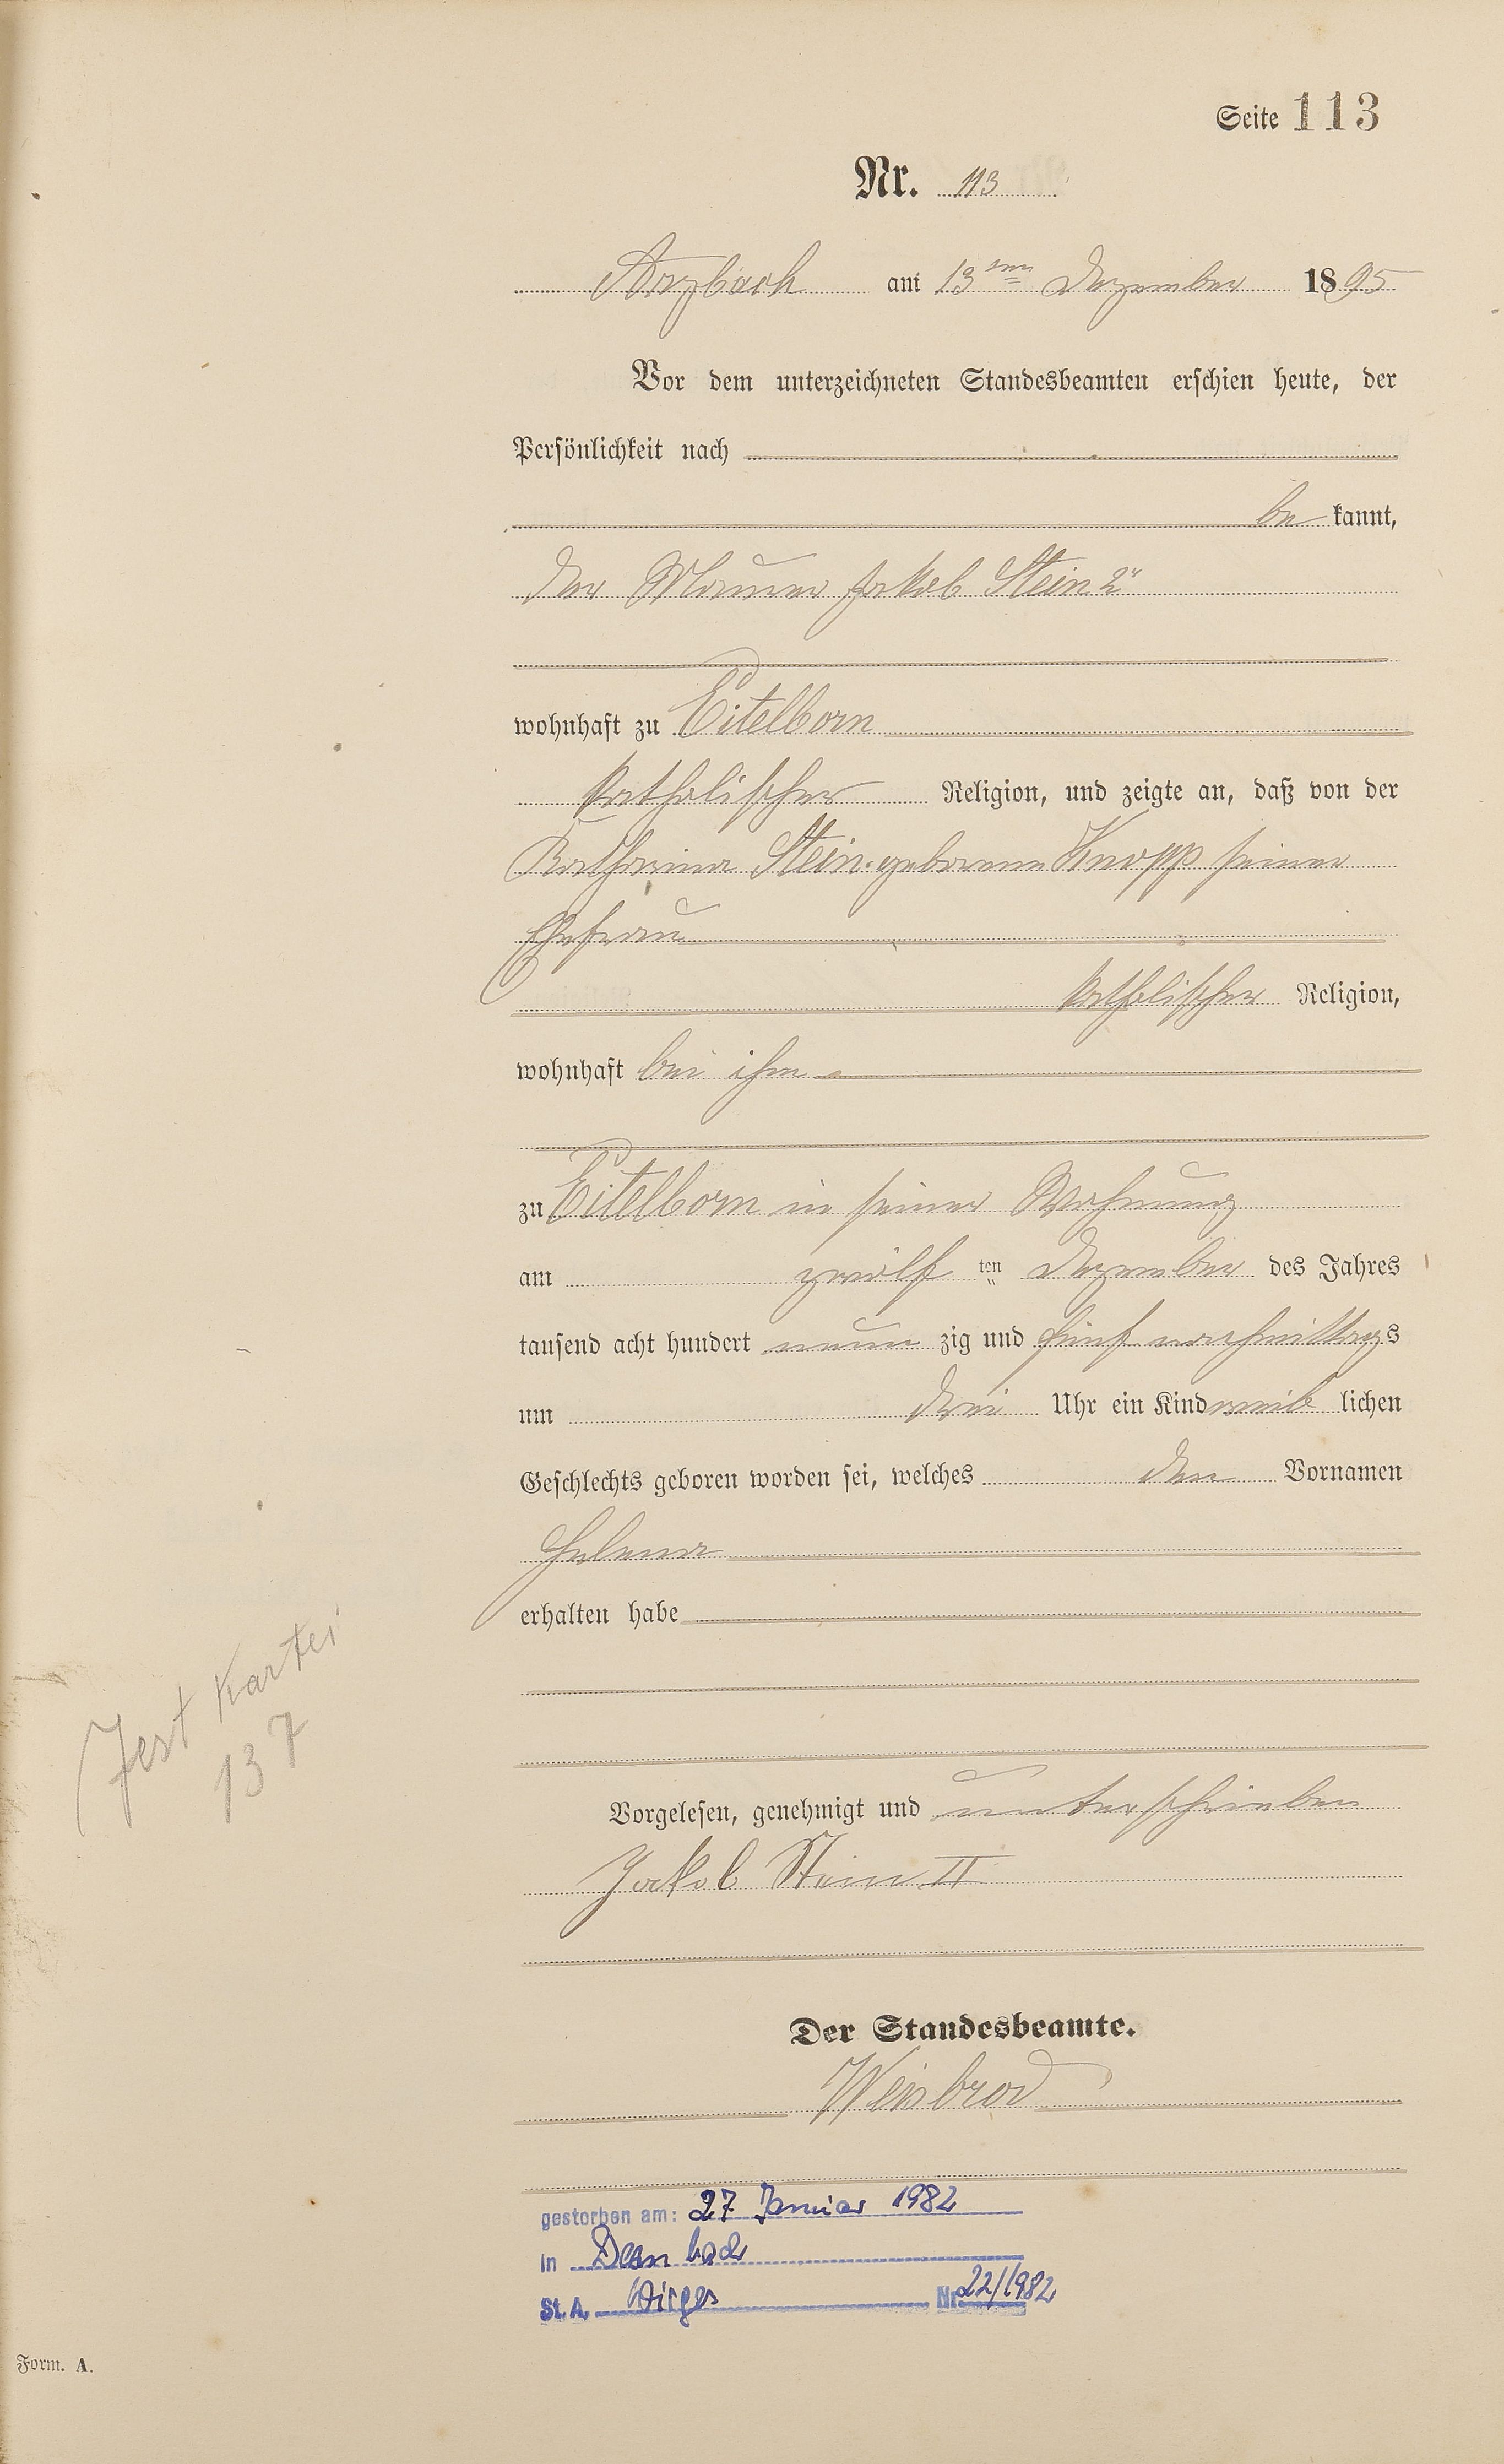 Seite 113
Nr. 113
Arzbach am 13ten Dezember 1895
Vor dem unterzeichneten Standesbeamten erschien heute, der
Persönlichkeit nach
be kannt,
der Maurer Jakob Stein 2"
wohnhaft zu Eitelborn
katholischer Religion, und zeigte an, daß von der
Katharina Stein geborenen Knopp seiner
Ehefrau
katholischer Religion,
wohnhaft bei ihm
zu Eitelborn in seiner Wohnung
am zwölf ten Dezember des Jahres
tausend acht hundert neun zig und fünf nachmittags
um drei Uhr ein Kind weib lichen
Geschlechts geboren worden sei, welches den Vornamen
Helena
erhalten habe
Test Kartei
137
Vorgelesen, genehmigt und unterschrieben
Jakob Stein II
Der Standesbeamte.
Weisbrod
gestorben am: 27 Januar 1982
in Dernbach
St. A. Wirges Nr. 22/1982
Form. A.